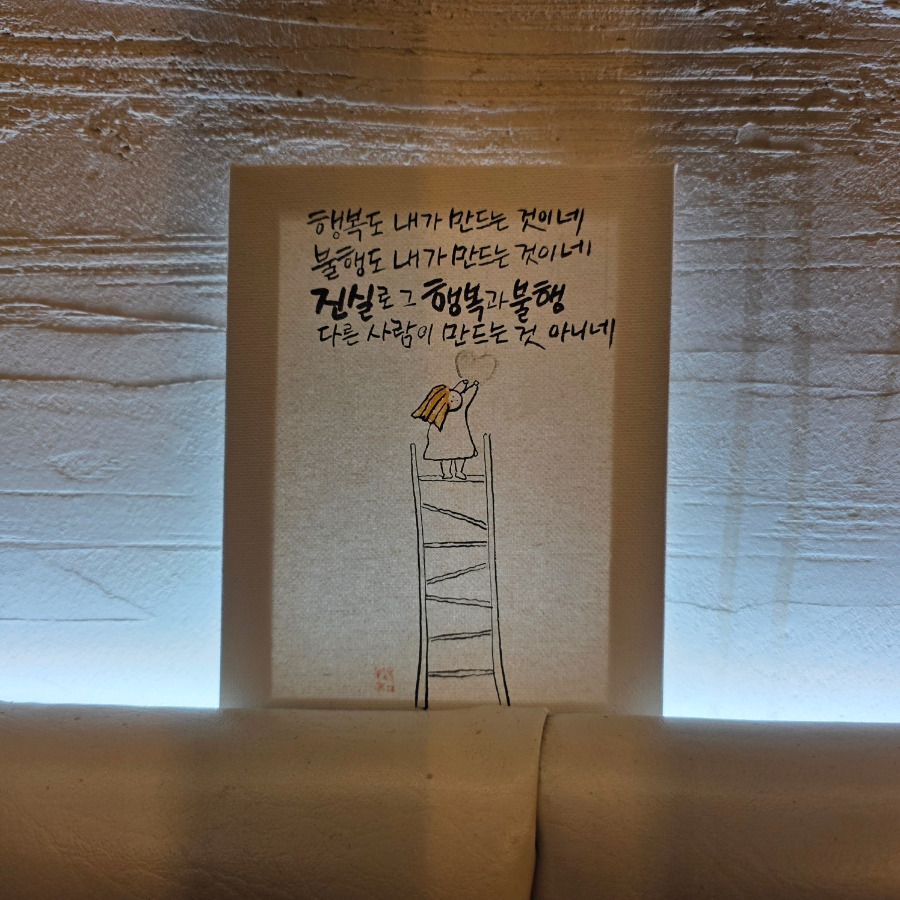 행복도 내가 만드는 것이네
불행도 내가 만드는 것이네
진실로 그 행복과 불행
다른 사람이 만드는 것 아니네